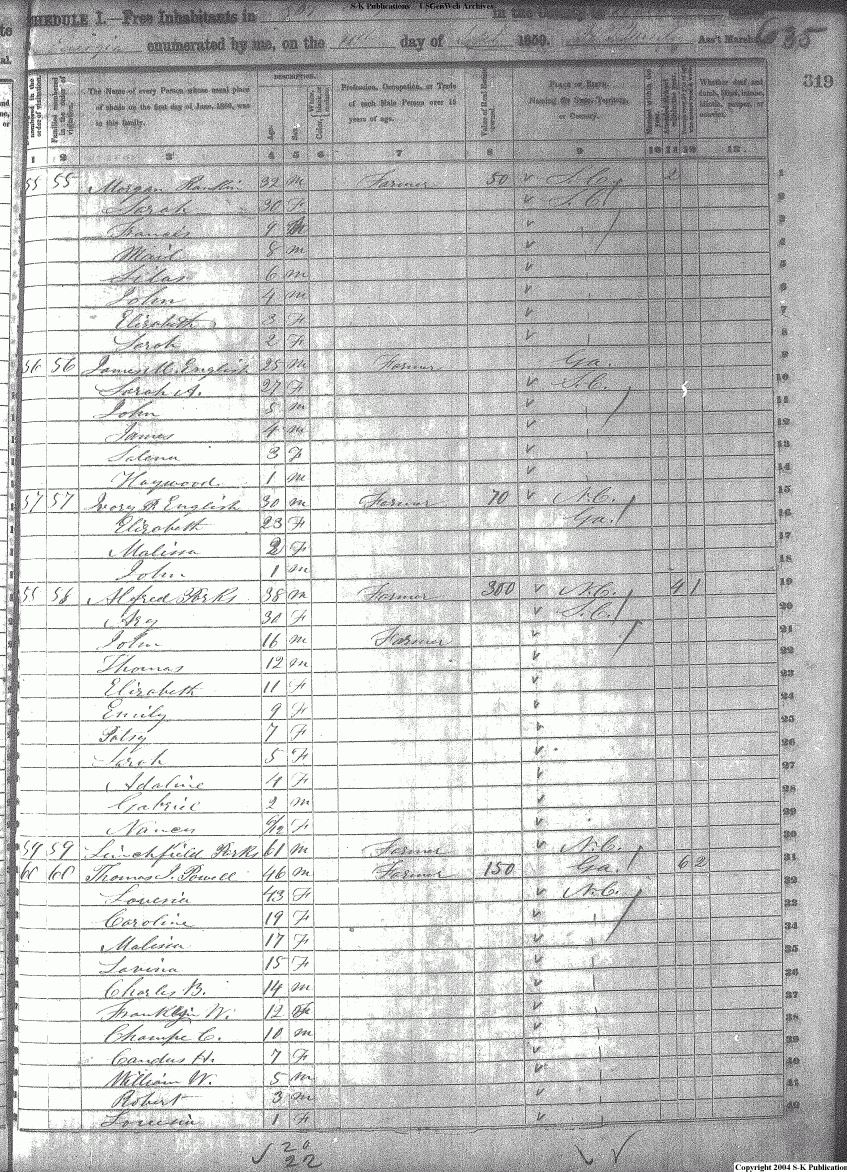 S-K Publications - USGenWeb Archives
SCHEDULE I. Free Inhabitants in in the County of
Georgia enumerated by me, on the day of 1850. Ass't Marshal 635
319
DESCRIPTION.
The Name of every Person whose usual place of abode on the first day of June, 1850, was in this family. Age. Sex. Profession, Occupation, or Trade of each Male Person over 15 years of age. Value of Real Estate owned. PLACE OF BIRTH. Naming the State, Territory, or Country. Whether deaf and dumb, blind, insane, idiotic, pauper, or convict.
1 2 3 4 5 6 7 8 9 10 11 12 13
55 55 Morgan Rankin 32 M Farmer 50 S.C. 2 1
Sarah 30 F S.C. 2
Frances 9 3
8 M 4
Silas 6 M 5
John 4 M 6
Elizabeth 3 F 7
Sarah 2 F 8
56 56 James English 25 M Farmer Ga. 9
Sarah A. 27 F S.C. 10
John 5 M 11
James 4 M 12
Salena 3 F 13
Haywood 1 M 14
57 57 Ivory R English 30 M Farmer 70 N.C. 15
Elizabeth 23 F Ga. 16
Malissa 2 F 17
John 1 M 18
58 58 Alfred Parks 38 M Farmer 300 N.C. 4 1 19
Ary 30 F S.C. 20
John 16 M Farmer 21
Thomas 12 M 22
Elizabeth 11 F 23
Emily 9 F 24
Patsy 7 F 25
Sarah 5 F 26
Adaline 4 F 27
Gabriel 2 M 28
Nancy 6/12 F 29
59 59 Linchfield Parks 61 M Farmer N.C. 30
60 60 Thomas J. Powell 46 M Farmer 150 Ga. 6 2 31
Louesia 43 F N.C. 32
Caroline 19 F 33
Malissa 17 F 34
Lavina 15 F 35
Charles B. 14 M 36
Franklin W. 12 37
Champe C. 10 M 38
Candus H. 7 F 39
William W. 5 M 40
Robert 3 M 41
Louesia 1 F 42
20
22
Copyright 2004 S-K Publications